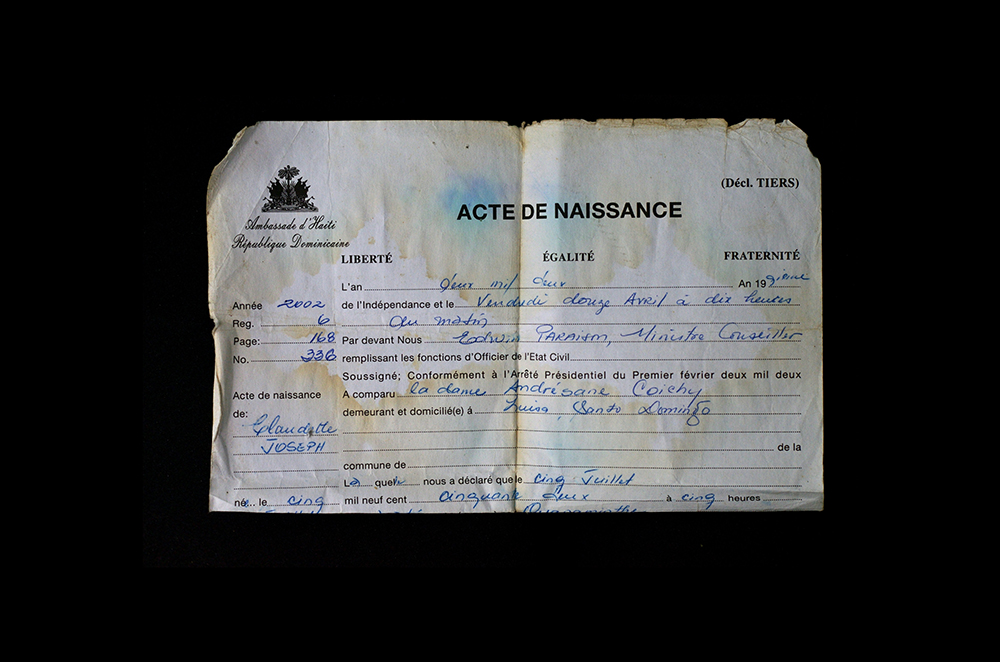 (Décl. TIERS)
Ambassade d'Haïti
République Dominicaine
ACTE DE NAISSANCE
LIBERTÉ ÉGALITÉ FRATERNITÉ
L'an deux mil deux An 199ième
Année 2002 de l'Indépendance et le Vendredi douze Avril à dix heures
Reg. 6 du matin
Page: 168 Par devant Nous Edwin PARAISON, Ministre Conseiller
No. 336 remplissant les fonctions d'Officier de l'Etat Civil
Soussigné; Conformément à l'Arrêté Présidentiel du Premier février deux mil deux
Acte de naissance A comparu la dame Andrésane Coichy
de: demeurant et domicilié(e) à Santo Domingo
Claudette
JOSEPH de la
commune de
La quelle nous a déclaré que le cinq Juillet
née le cinq mil neuf cent cinquante deux à cinq heures